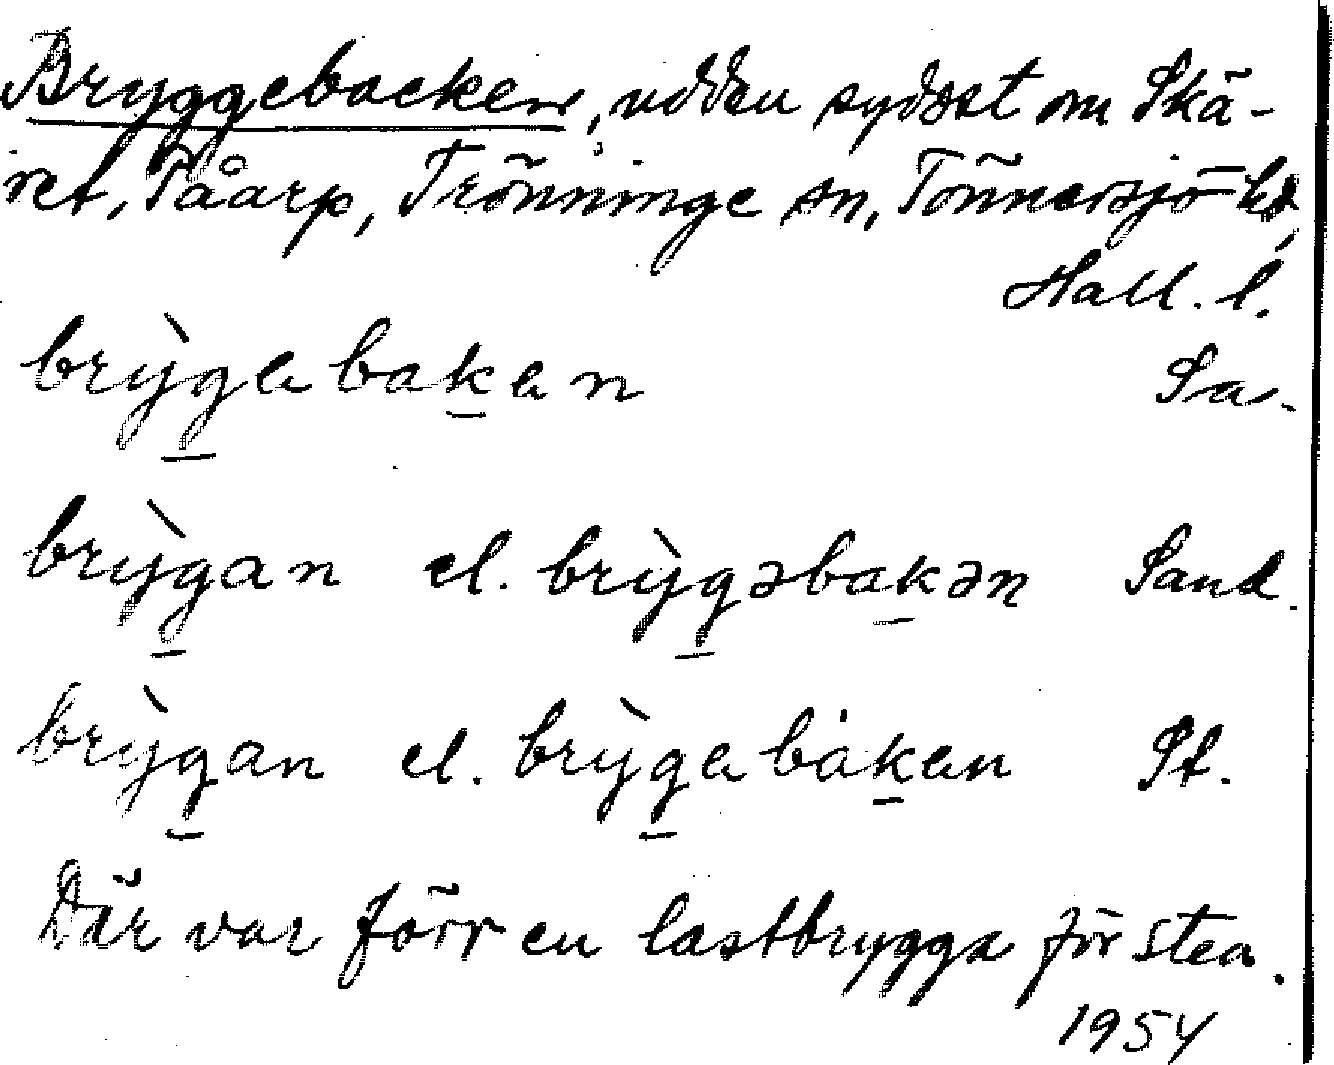 Bryggebacken, udden sydost om Skä-
ret, Tåarp, Trönninge sn, Tönnersjö hd,
Hall. l.
brỳg̱ɐbaḵɐn Sa.
brỳg̱an el. brỳg̱əbaḵən Sand.
brỳg̱an el. brỳg̱ɐbȧḵɐn St.
Där var förr en lastbrygga för sten.
1954